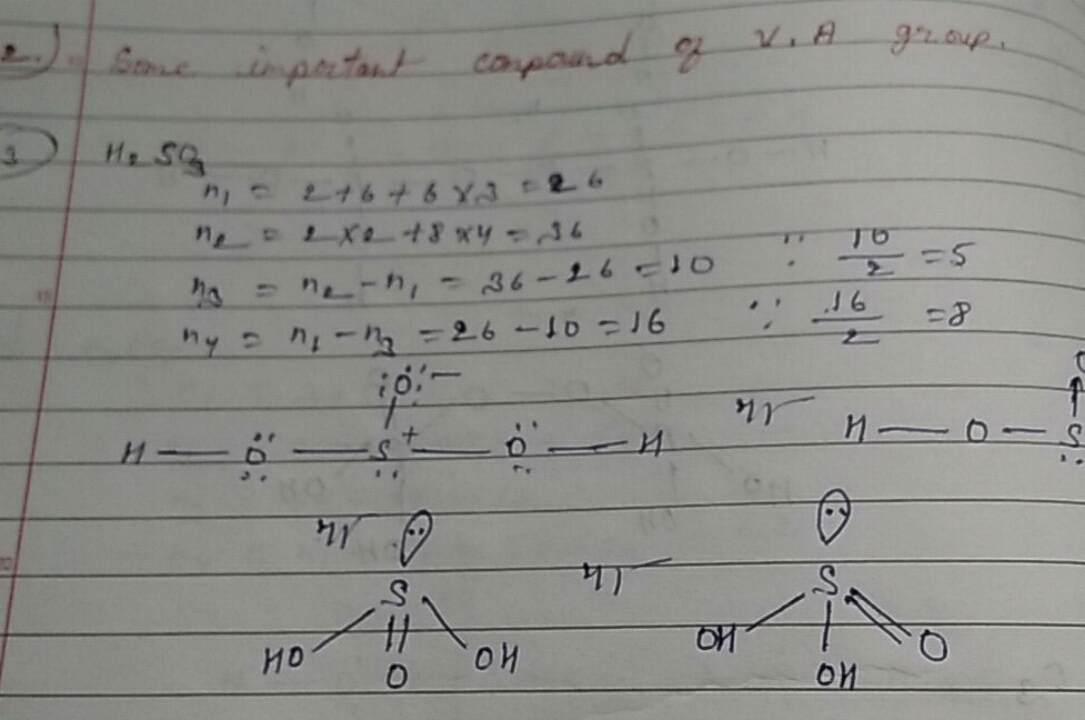 2.) Some important compound of V.A group.
3) H₂SO₃
n₁ = 2+6+6×3 = 26
n₂ = 2×2+8×4 = 36
n₃ = n₂-n₁ = 36-26 = 10 ∵ 10/2 = 5
n₄ = n₁-n₃ = 26-10 = 16 ∵ 16/2 = 8
:Ö:⁻
H — Ö — S⁺ — Ö — H
H — O — S
S S
HO O OH OH OH O